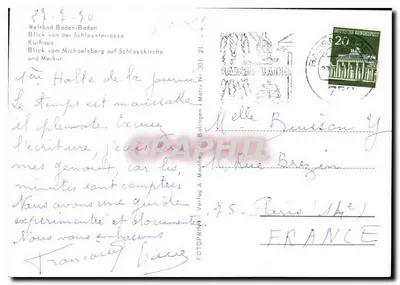 Weltbad Baden-Baden
Blick von der Schlossterrasse
Kurhaus
Blick vom Michaelsberg auf Schlosskirche
und Merkur
Halte de la journée
Le temps est maussade
il pleuvote. Excuse
l'écriture, j'écris
mes genoux, car les
minutes sont comptées
Nous avons une guide
expérimentée et documentée
Nous vous embrassons
FOTOPRINT Verlag A.
Balingen / Motiv Nr. 201. 21
BADEN-BADEN
DEUTSCHE BUNDESPOST
20
Melle Buisson Y
Rue Brezin
75. Paris (14e)
FRANCE
CPAPHIL.com